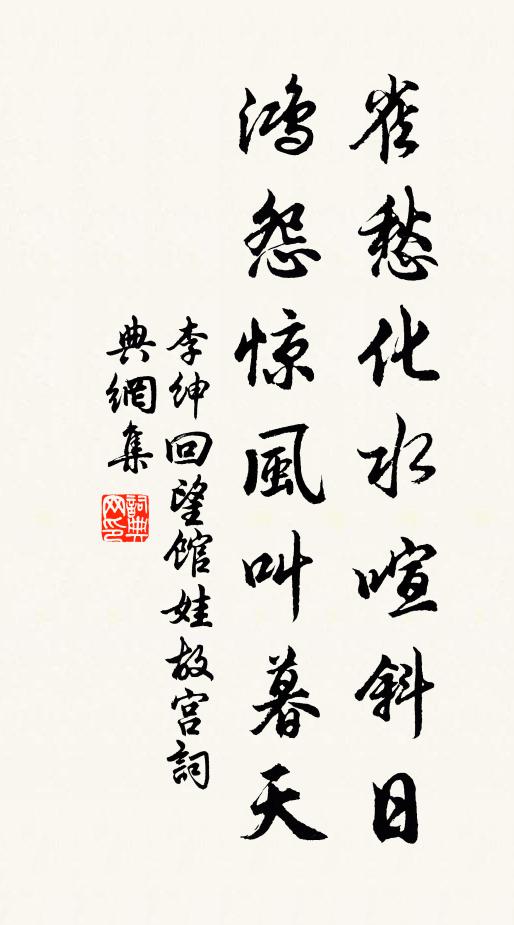 雀愁化水喧斜日
鸿怨惊風叫暮天
李紳回望館娃故宮詞
典網集
詞典
网印